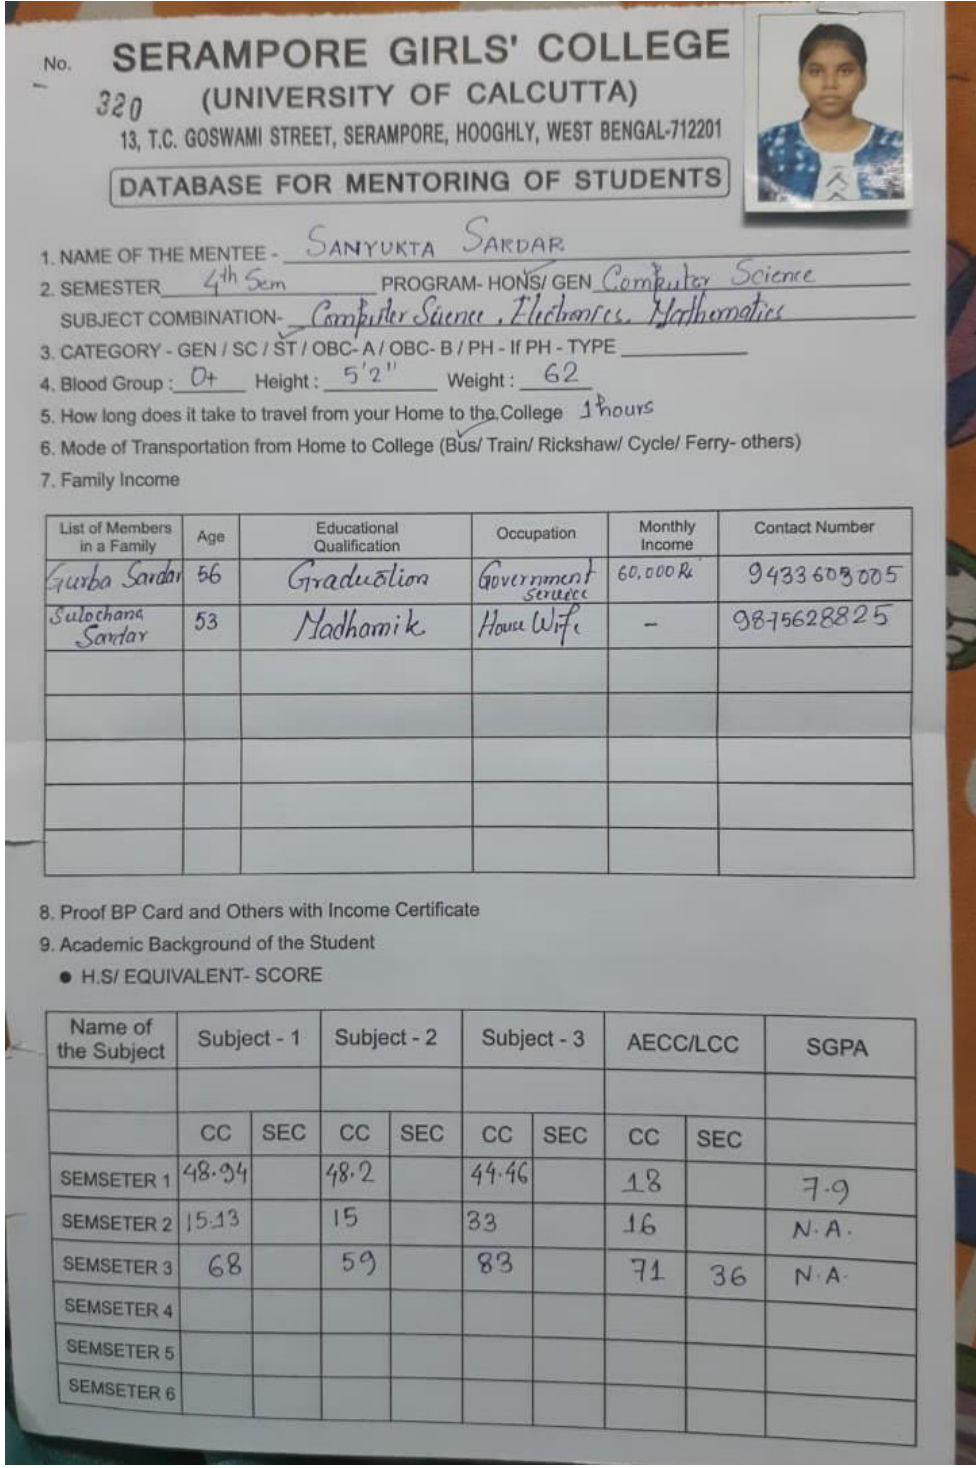 No. SERAMPORE GIRLS' COLLEGE
320 (UNIVERSITY OF CALCUTTA)
13, T.C. GOSWAMI STREET, SERAMPORE, HOOGHLY, WEST BENGAL-712201
DATABASE FOR MENTORING OF STUDENTS
1. NAME OF THE MENTEE - SANYUKTA SARDAR
2. SEMESTER 4th Sem PROGRAM- HONS/ GEN Computer Science
SUBJECT COMBINATION- Computer Science, Electronics, Mathematics
3. CATEGORY - GEN / SC / ST / OBC- A / OBC- B / PH - If PH - TYPE
4. Blood Group : O+ Height : 5'2" Weight : 62
5. How long does it take to travel from your Home to the College 1 hours
6. Mode of Transportation from Home to College (Bus/ Train/ Rickshaw/ Cycle/ Ferry- others)
7. Family Income
List of Members in a Family Age Educational Qualification Occupation Monthly Income Contact Number
Gurba Sardar 56 Graduation Government service 60,000 Rs 9433603005
Sulochana Sardar 53 Madhamik House Wife - 9875628825
8. Proof BP Card and Others with Income Certificate
9. Academic Background of the Student
● H.S/ EQUIVALENT- SCORE
Name of the Subject Subject - 1 Subject - 2 Subject - 3 AECC/LCC SGPA
CC SEC CC SEC CC SEC CC SEC
SEMSETER 1 48.94 48.2 44.46 18 7.9
SEMSETER 2 15.13 15 33 16 N.A.
SEMSETER 3 68 59 83 71 36 N.A.
SEMSETER 4
SEMSETER 5
SEMSETER 6